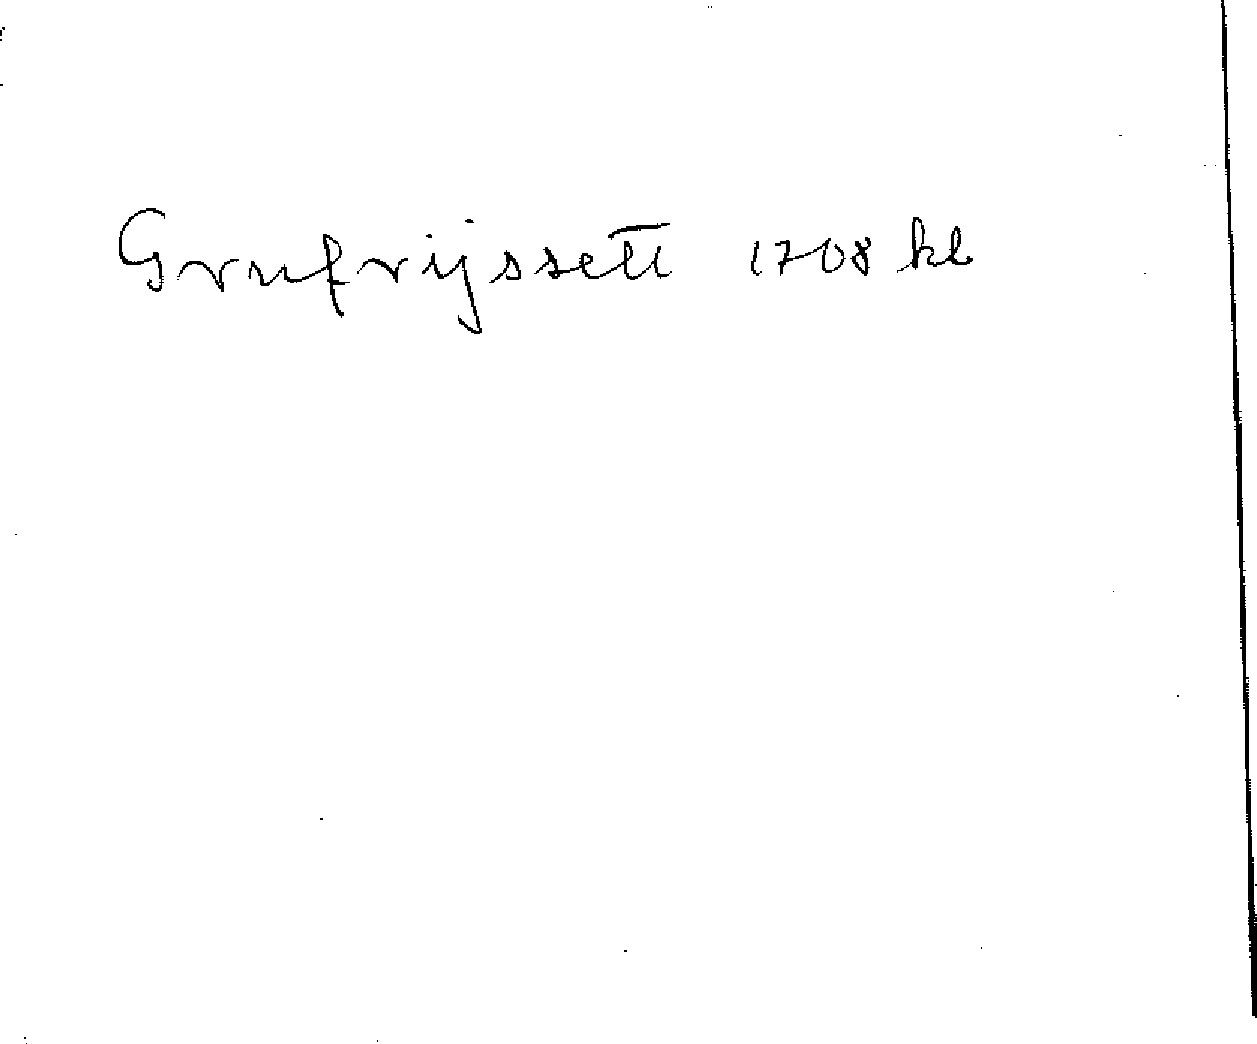 Grufrijssett 1708 kl